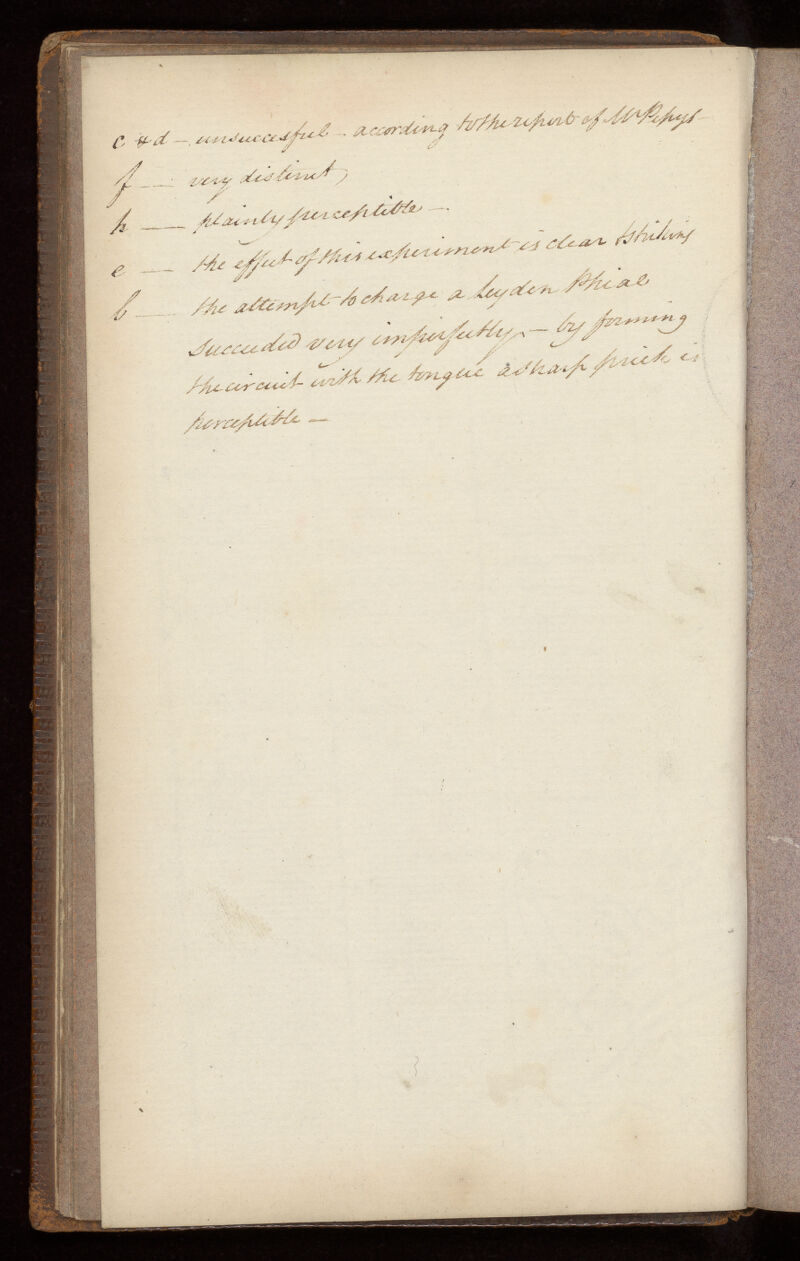 c & d — unsuccesful — according to the report of Mr Pepys —
f — very distinct,
h — plainly perceptible —.
e — the effect of this experiment is clear & striking
b — the attempt to charge a Leyden Phial
Succeeded very imperfectly, — by forming
the circuit with the tongue a sharp prick is
perceptible —